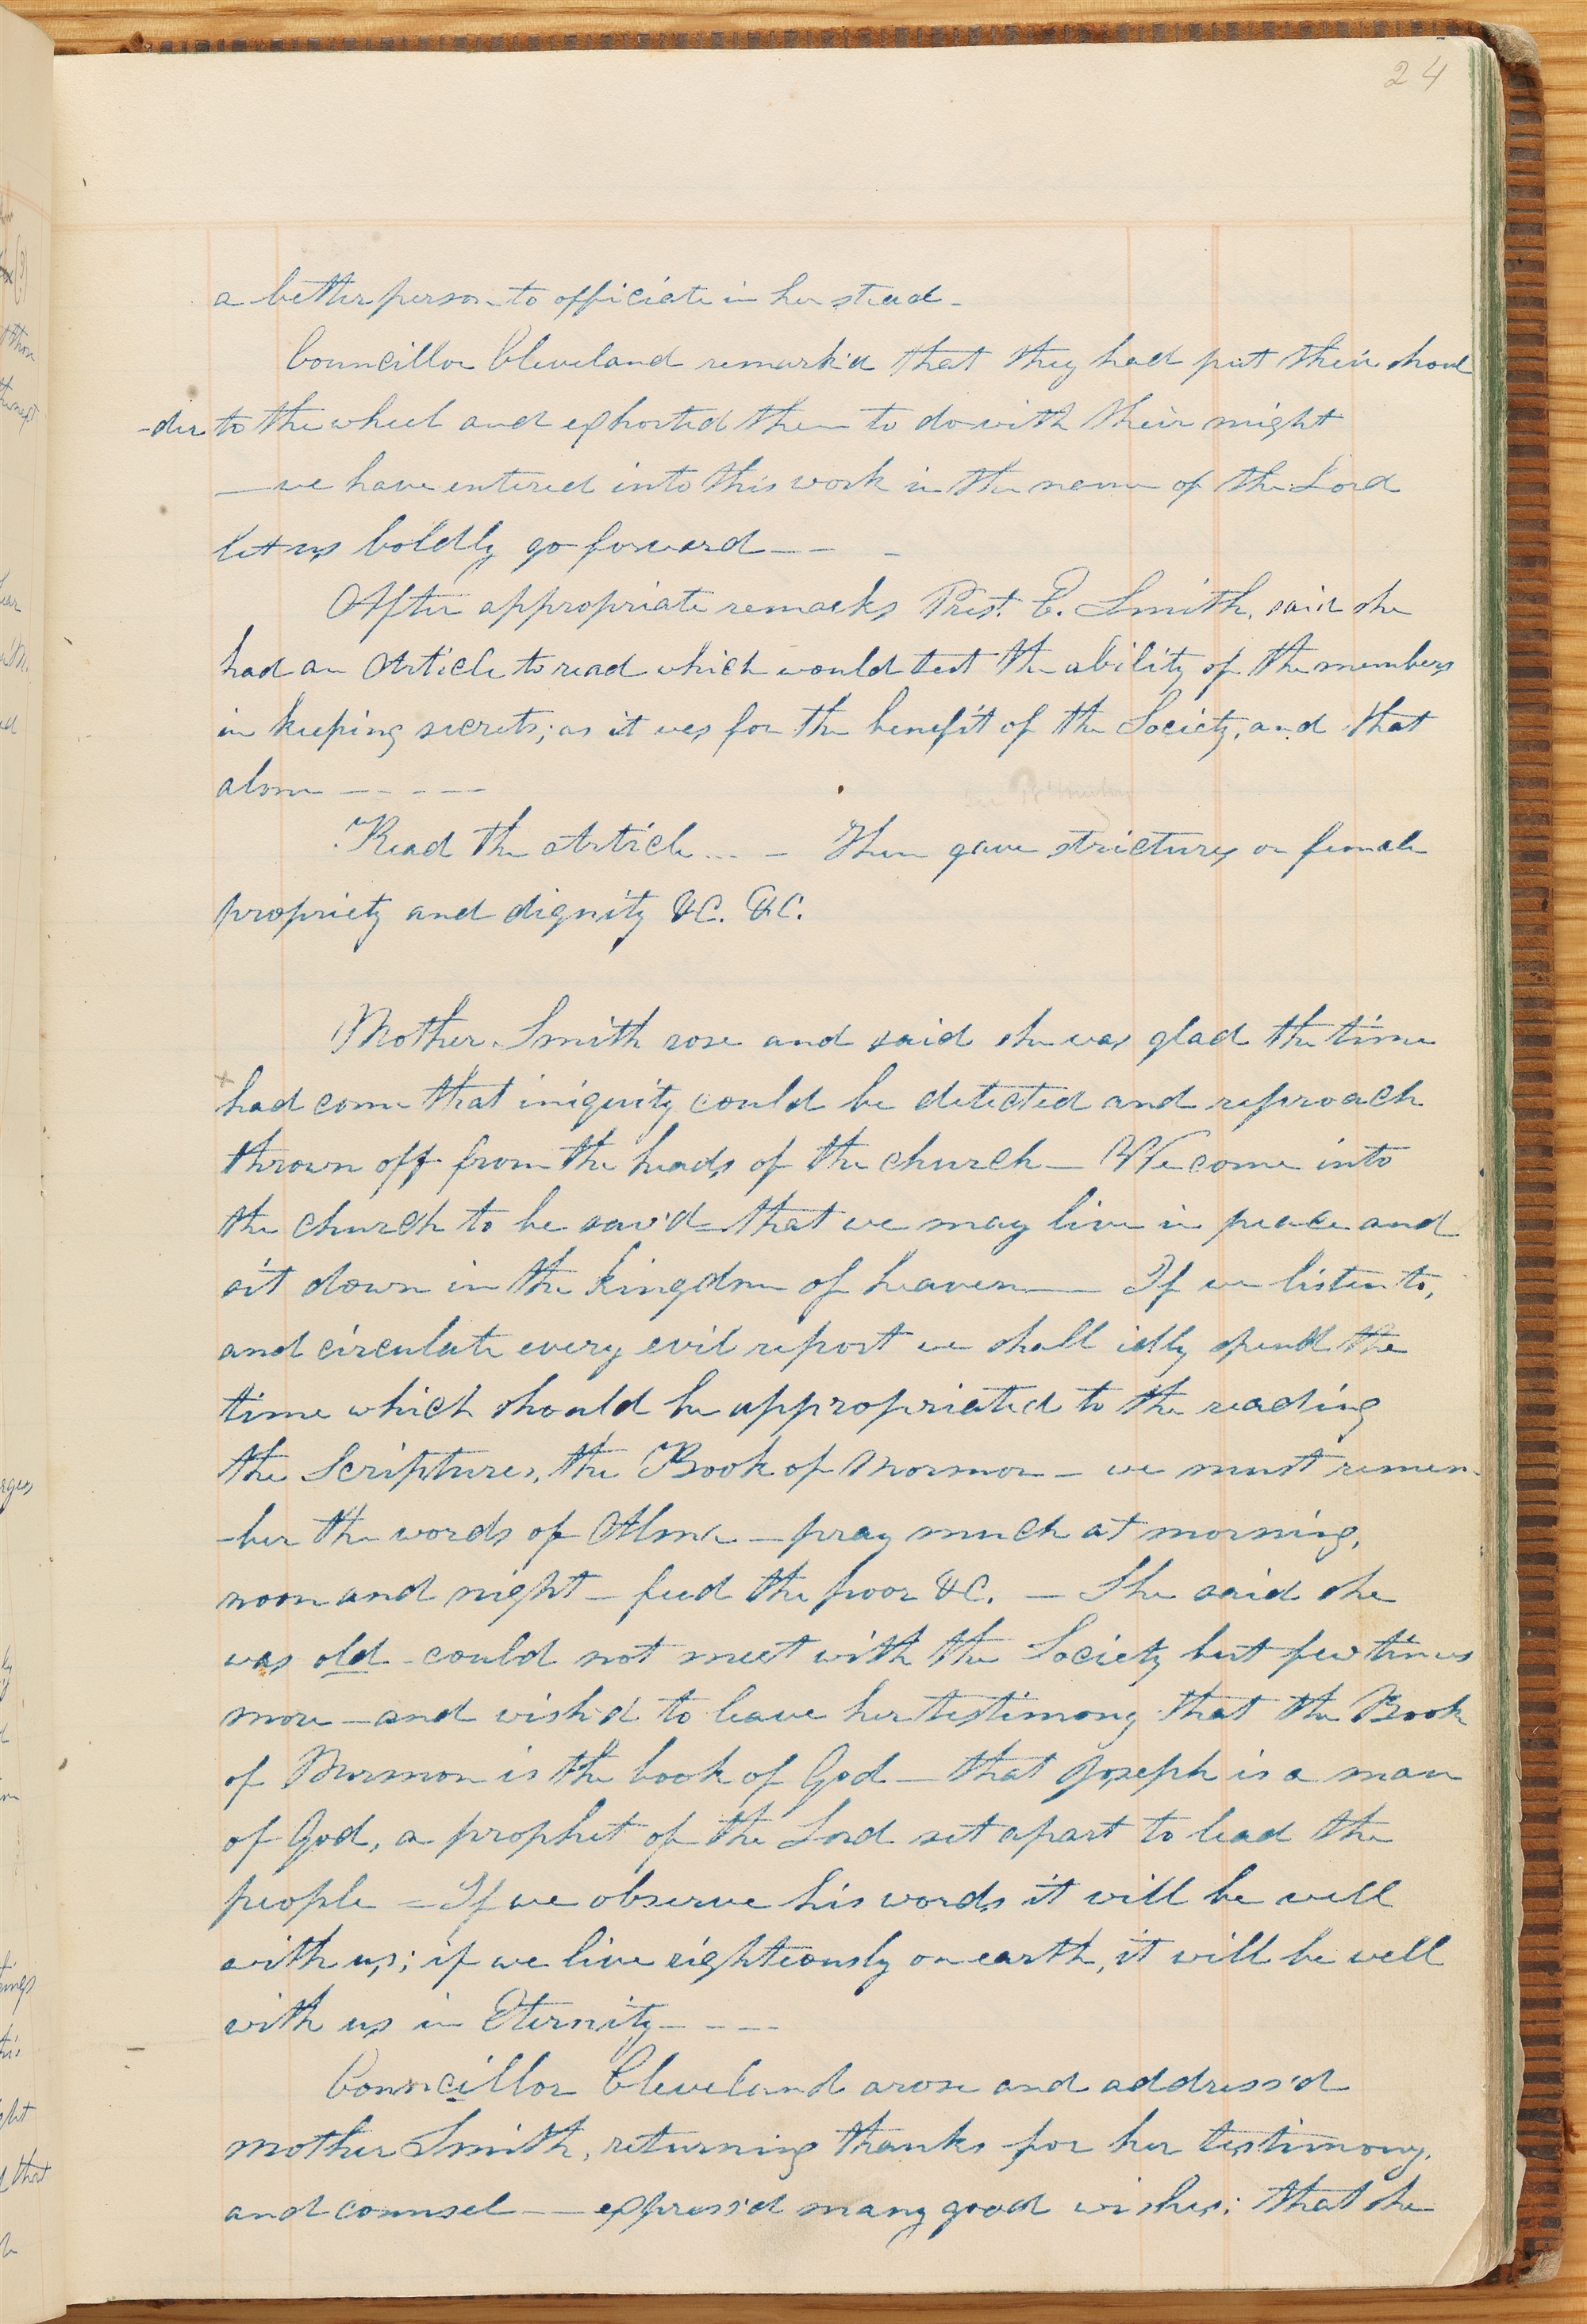 24
a better person to officiate in her stead –
Councillor Cleveland remark'd that they had put their shoul
-der to the wheel and exhorted them to do with their might
— we have entered into this work in the name of the Lord
let us boldly go forward — – –
After appropriate remarks Prest. E. Smith, said she
had an Article to read which would test the ability of the members
in keeping secrets; as it was for the benefit of the Society, and that
alone – – – – –
Read the Article – – – Then gave strictures on female
propriety and dignity &C. &C.
Mother Smith rose and said she was glad the time
had come that iniquity could be detected and reproach
thrown off from the heads of the church — We come into
the church to be sav'd – that we may live in peace and
sit down in the kingdom of heaven —— If we listen to,
and circulate every evil report we shall idly spend the
time which should be appropriated to the reading
the Scriptures, the Book of Mormon – we must remem-
-ber the words of Alma – pray much at morning,
noon and night – feed the poor &C. – She said she
was old – could not meet with the Society but few times
more – and wish'd to leave her testimony that the Book
of Mormon is the book of God – that Joseph is a man
of God, a prophet of the Lord set apart to lead the
people = If we observe his words it will be well
with us; if we live righteously on earth, it will be well
with us in Eternity – – – –
Councillor Cleveland arose and address'd
mother Smith, returning thanks for her testimony,
and counsel —— express'd many good wishes; that she